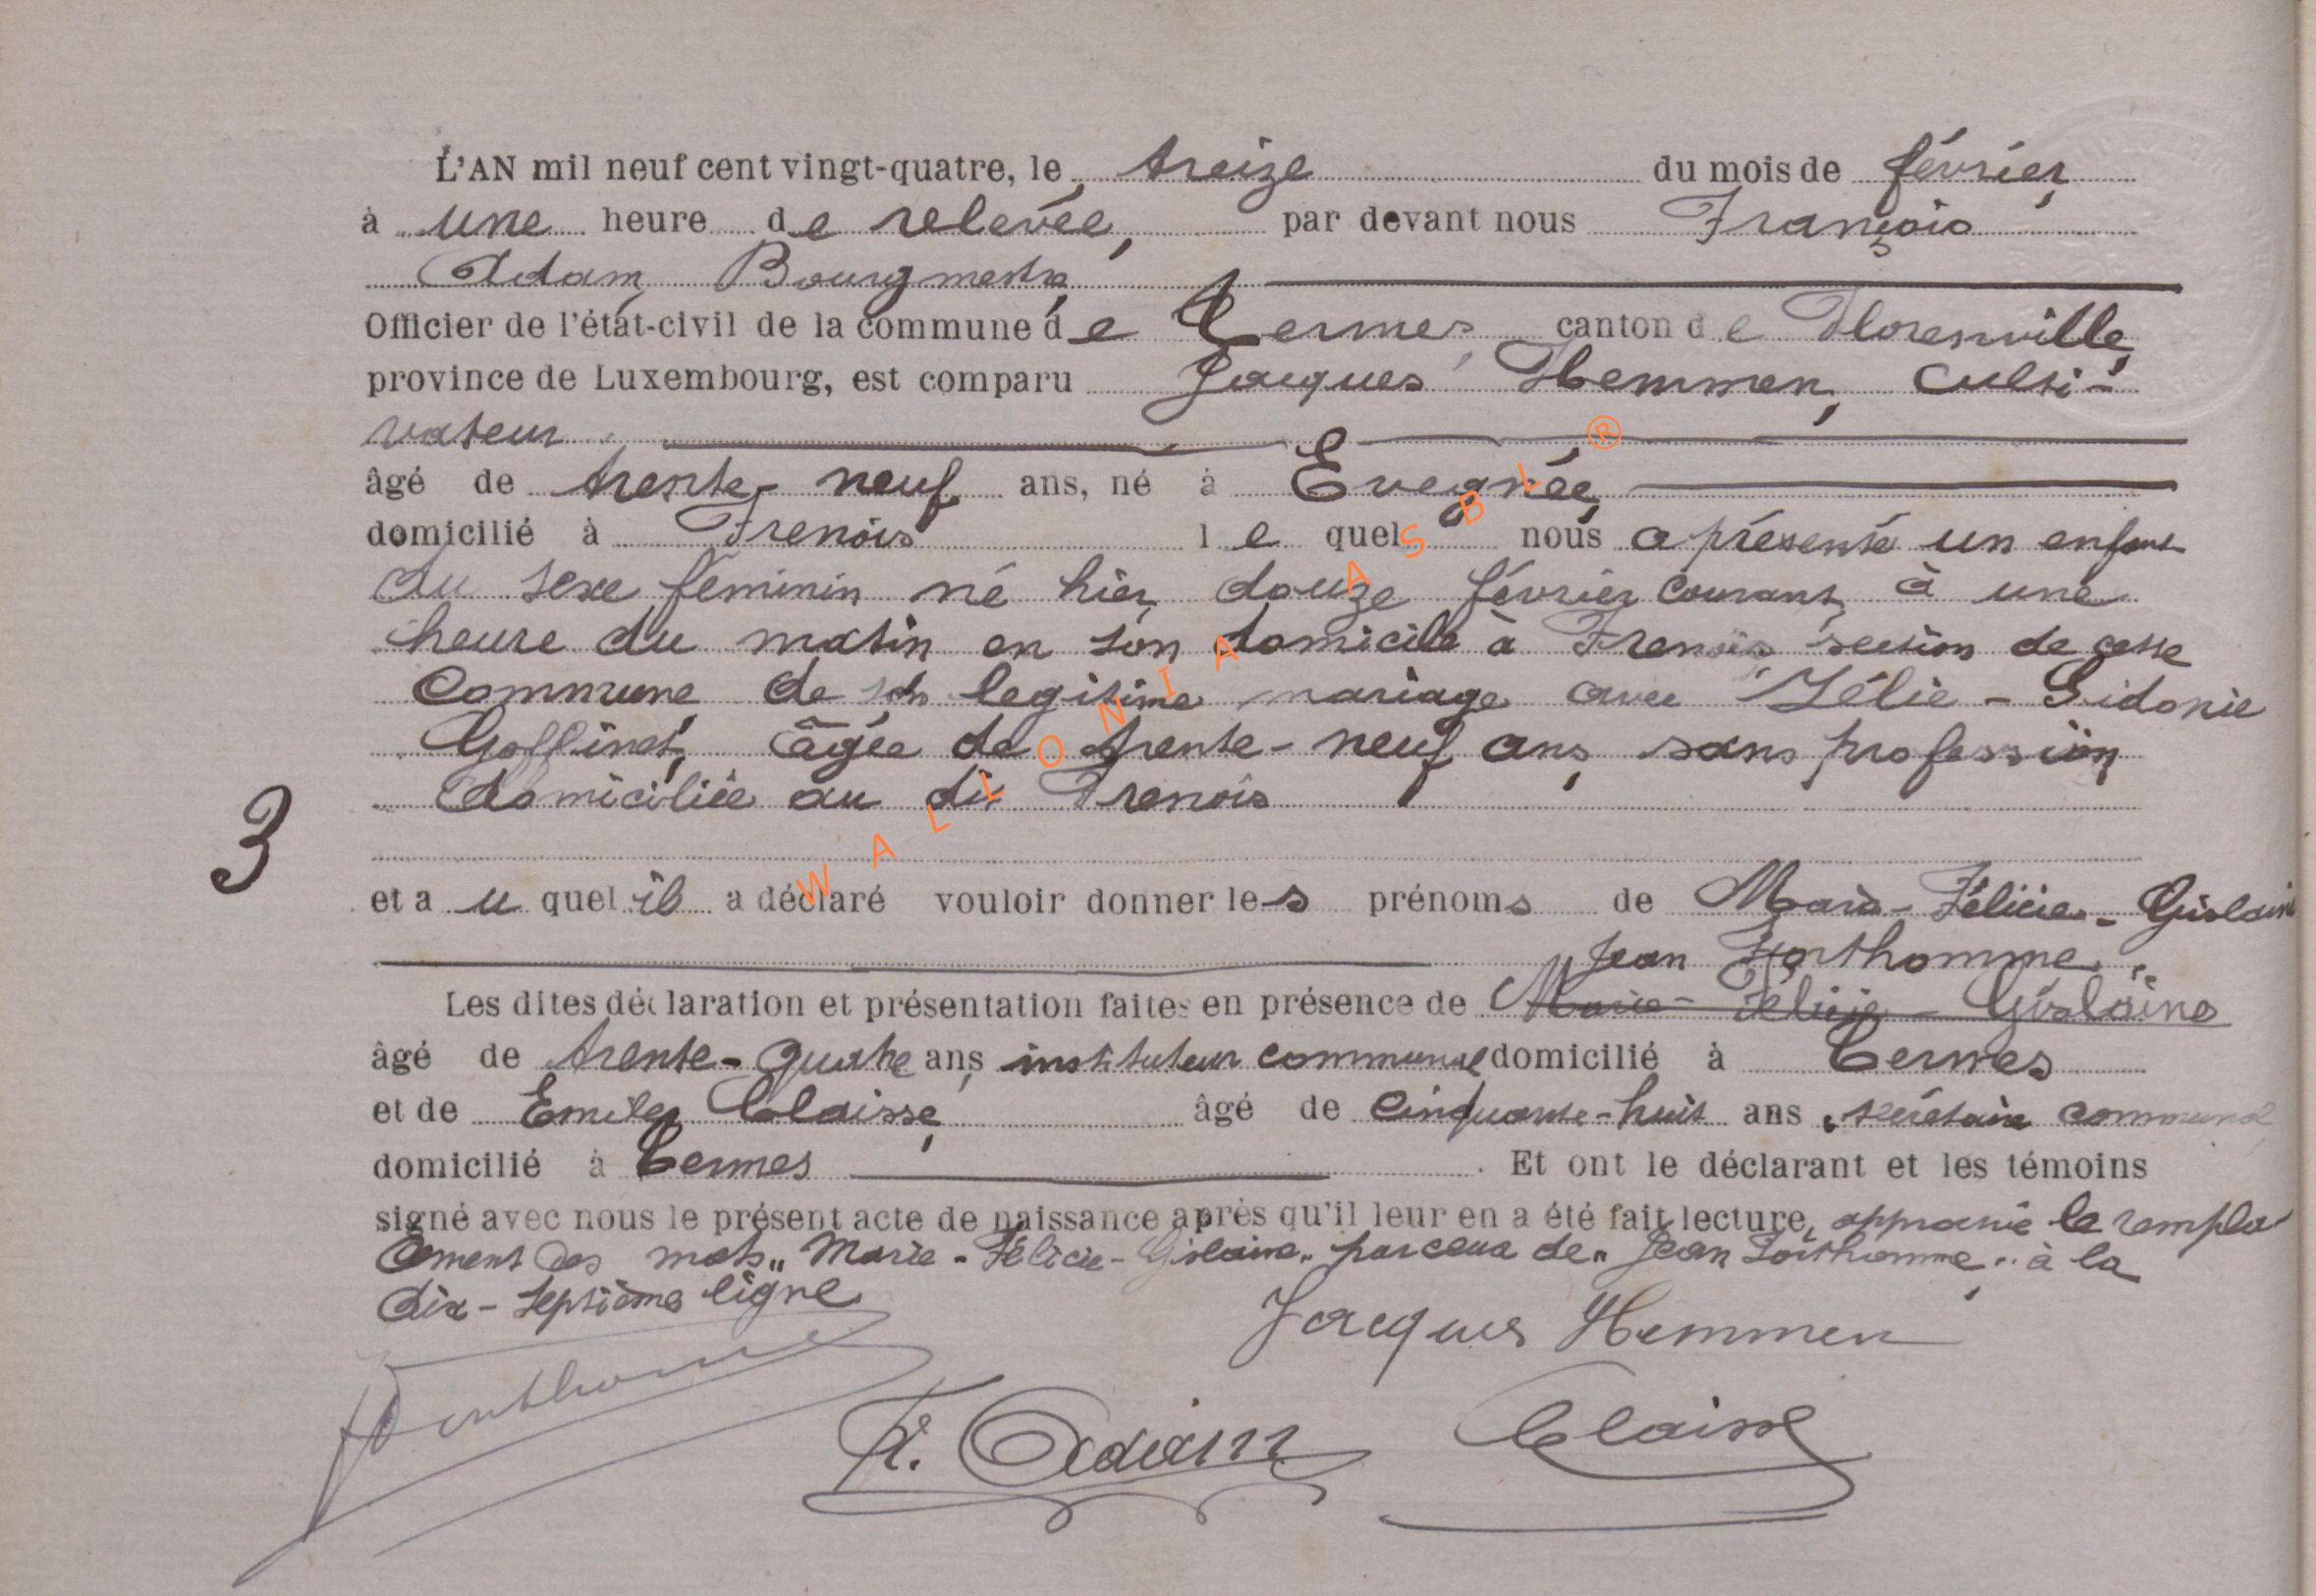 L'AN mil neuf cent vingt-quatre, le treize du mois de février,
à une heure de relevée, par devant nous François
Adam, Bourgmestre
Officier de l'état-civil de la commune de Termes, canton de Florenville,
province de Luxembourg, est comparu Jacques Hemmen, culti-
vateur
âgé de trente-neuf ans, né à Evegnée,
domicilié à Frenois lequel nous a présenté un enfant
du sexe féminin né hier, douze février courant, à une
heure du matin en son domicile à Frenois, section de cette
commune de son legitime mariage avec Zélie - Sidonie
Goffinet, âgée de trente-neuf ans, sans profession,
domiciliée au dit Frenois
3
et auquel il a déclaré vouloir donner les prénoms de Marie-Félicie-Gislaine
Jean Forthomme,
Les dites déclaration et présentation faites en présence de Marie-Félicie-Gislaine
âgé de trente-quatre ans, instituteur communal domicilié à Termes
et de Emile Claisse, âgé de cinquante-huit ans, secrétaire communal
domicilié à Termes . Et ont le déclarant et les témoins
signé avec nous le présent acte de naissance après qu'il leur en a été fait lecture, approuvé le rempla-
cement des mots „Marie-Félicie-Gislaine„ par ceux de „Jean Forthomme„ à la
dix-septième ligne
Jacques Hemmen
Forthomme
F. Adam Claisse
WALLONIA ASBL ®